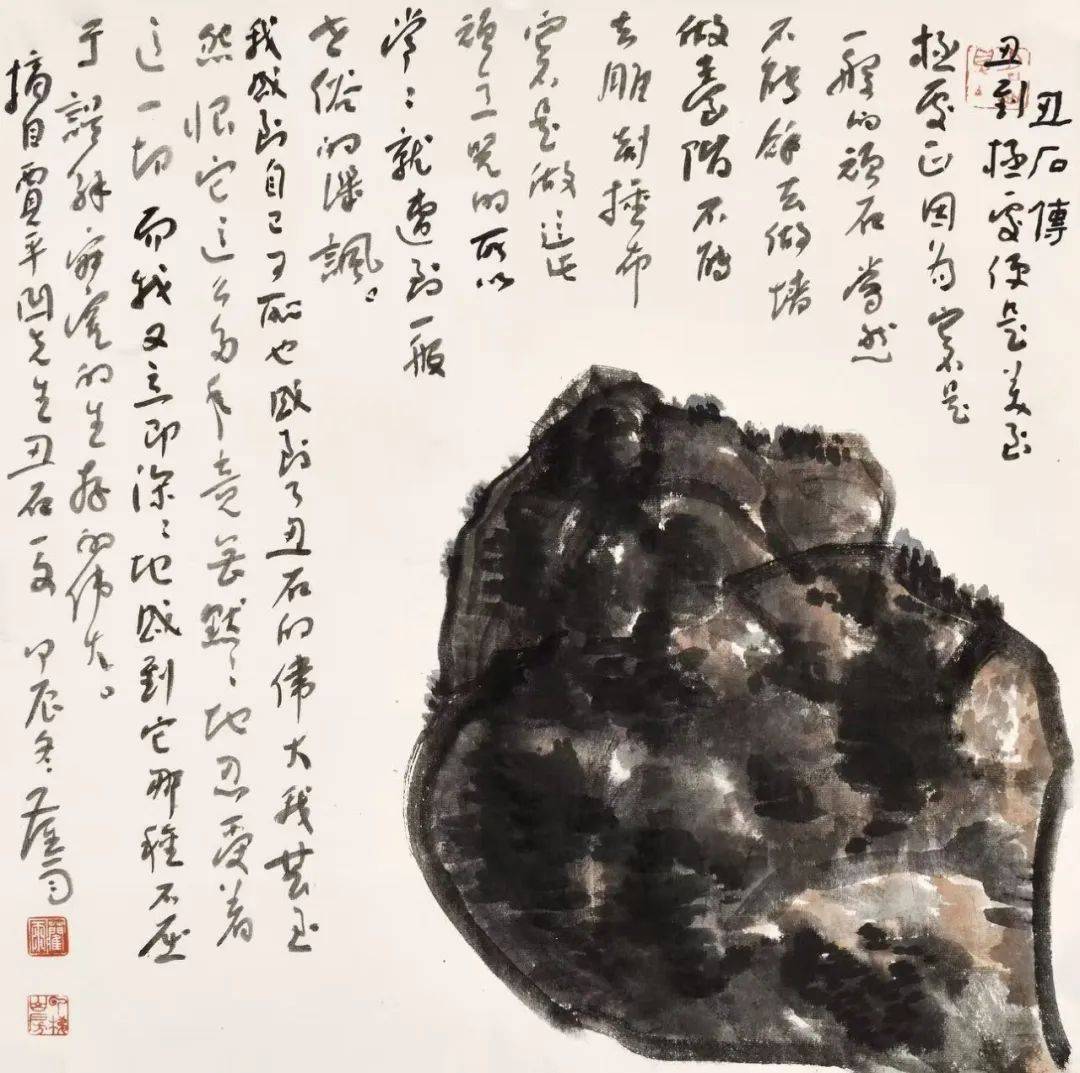 丑石傳
丑到極處便是美到
極處正因為它不是
一般的頑石當然
不能餘去做墻
做臺階不能
去雕刻捶布
它不是做這些
頑工兒的所以
常：就遭到一般
世俗的讥諷。
我感到自己可耻也感到了丑石的偉大我甚至
然恨它這么多年竟会默：地忍受着
這一切而我又立即深：地感到它那種不屈
于误解寂寞的生存的偉大。
摘自賈平凹先生丑石一文 甲辰冬